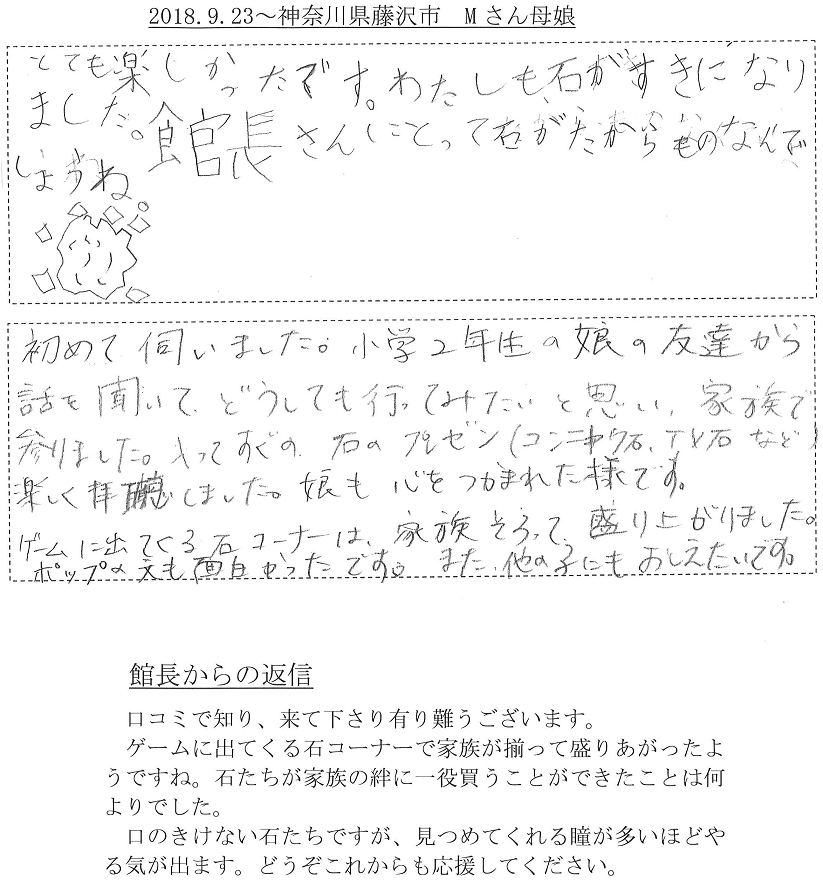 2018.9.23～神奈川県藤沢市　Mさん母娘
とても楽しかったです。わたしも石がすきになり
ました。館長さんにとって石がたからものなんで
しょうね。
初めて伺いました。小学2年生の娘の友達から
話を聞いて、どうしても行ってみたいと思い、家族で
参りました。入ってすぐの石のプレゼン(コンニャク石、TV石など)
楽しく拝聴しました。娘も心をつかまれた様です。
ゲームに出てくる石コーナーは、家族そろって、盛り上がりました。
ポップの文も面白かったです。また、他の子にもおしえたいです。
館長からの返信
口コミで知り、来て下さり有り難うございます。
ゲームに出てくる石コーナーで家族が揃って盛りあがったよ
うですね。石たちが家族の絆に一役買うことができたことは何
よりでした。
口のきけない石たちですが、見つめてくれる瞳が多いほどや
る気が出ます。どうぞこれからも応援してください。